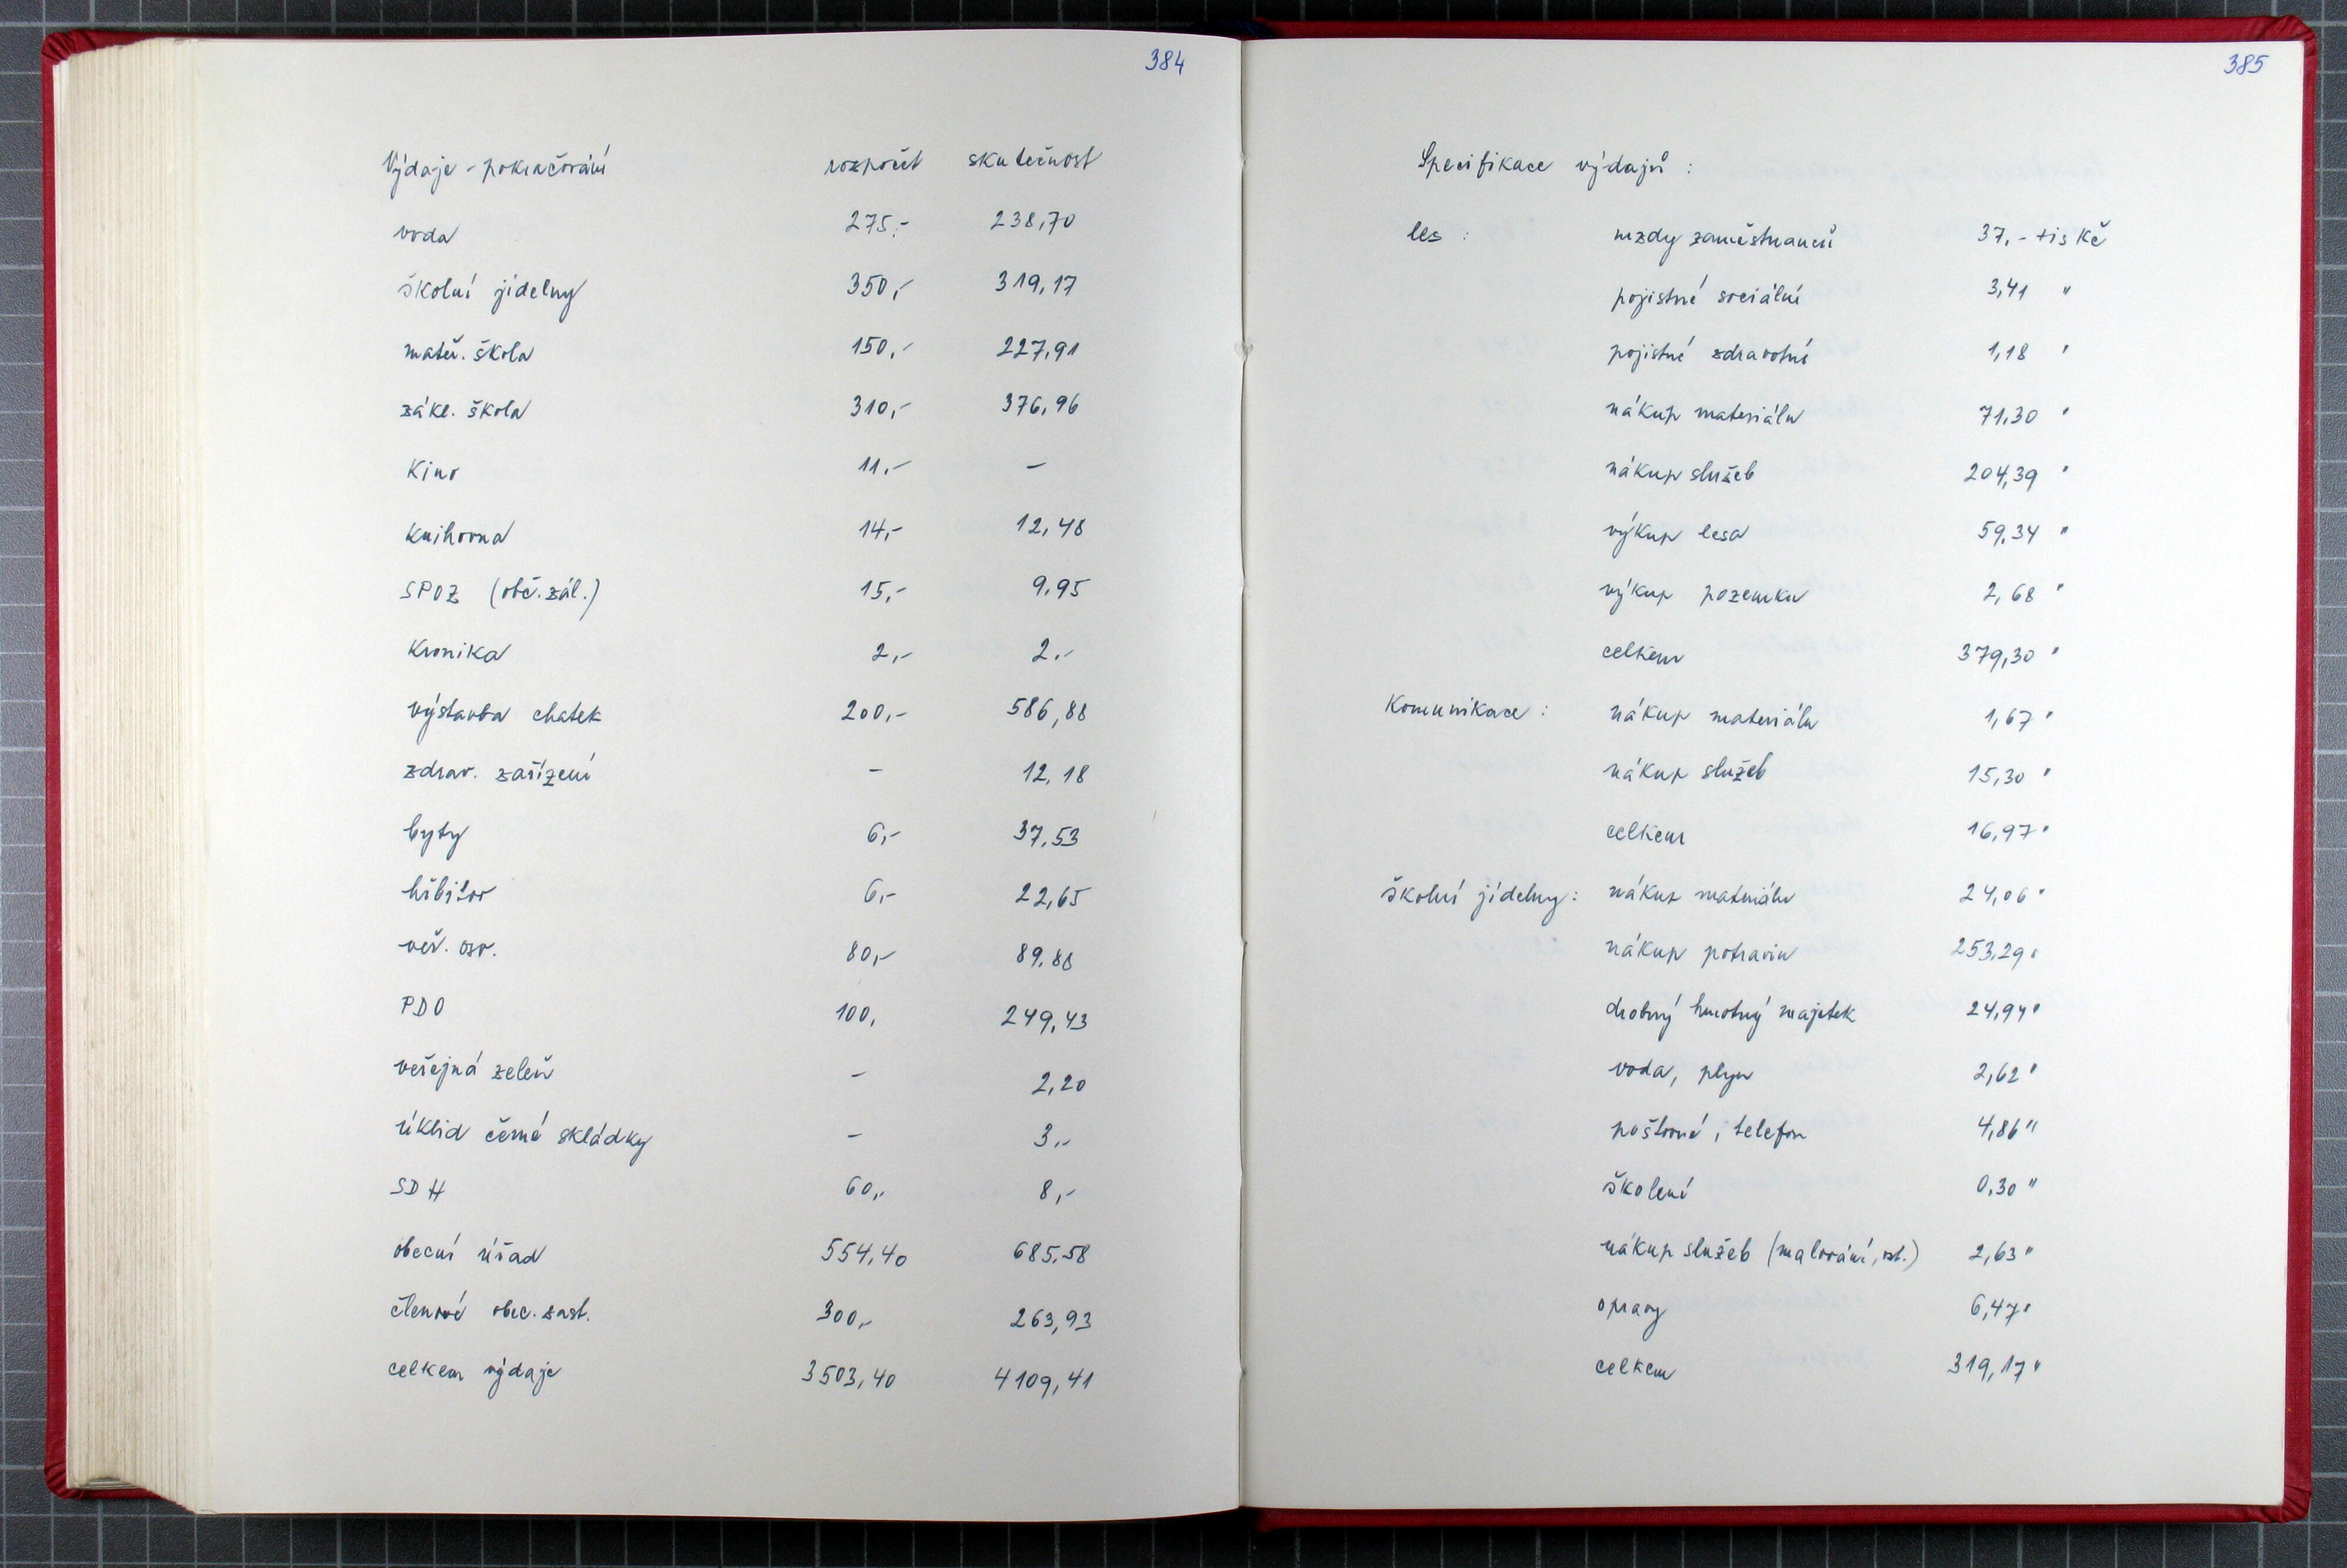 384
Výdaje - pokračování rozpočet skutečnost
voda 275,- 238,70
školní jídelny 350,- 319,17
mateř. škola 150,- 227,91
zákl. škola 310,- 376,96
Kino 11,- -
Knihovna 14,- 12,48
SPOZ (obč. zál.) 15,- 9,95
Kronika 2,- 2,-
výstavba chatek 200,- 586,88
zdrav. zařízení - 12,18
byty 6,- 37,53
hřbitov 6,- 22,65
veř. osv. 80,- 89,88
PDO 100, 249,43
veřejná zeleň - 2,20
úklid černé skládky - 3,-
SDH 60,- 8,-
obecní úřad 554,40 685,58
členové obec. zast. 300,- 263,93
celkem výdaje 3503,40 4109,41
385
Specifikace výdajů :
les : mzdy zaměstnanců 37,- tis Kč
pojistné sociální 3,41 "
pojistné zdravotní 1,18 "
nákup materiálu 71,30 "
nákup služeb 204,39 "
výkup lesa 59,34 "
výkup pozemku 2,68 "
celkem 379,30 "
Komunikace : nákup materiálu 1,67 "
nákup služeb 15,30 "
celkem 16,97 "
školní jídelny : nákup materiálu 24,06 "
nákup potravin 253,29 "
drobný hmotný majetek 24,94 "
voda, plyn 2,62 "
poštovné, telefon 4,86 "
školení 0,30 "
nákup služeb (malování, ost.) 2,63 "
opravy 6,47 "
celkem 319,17 "